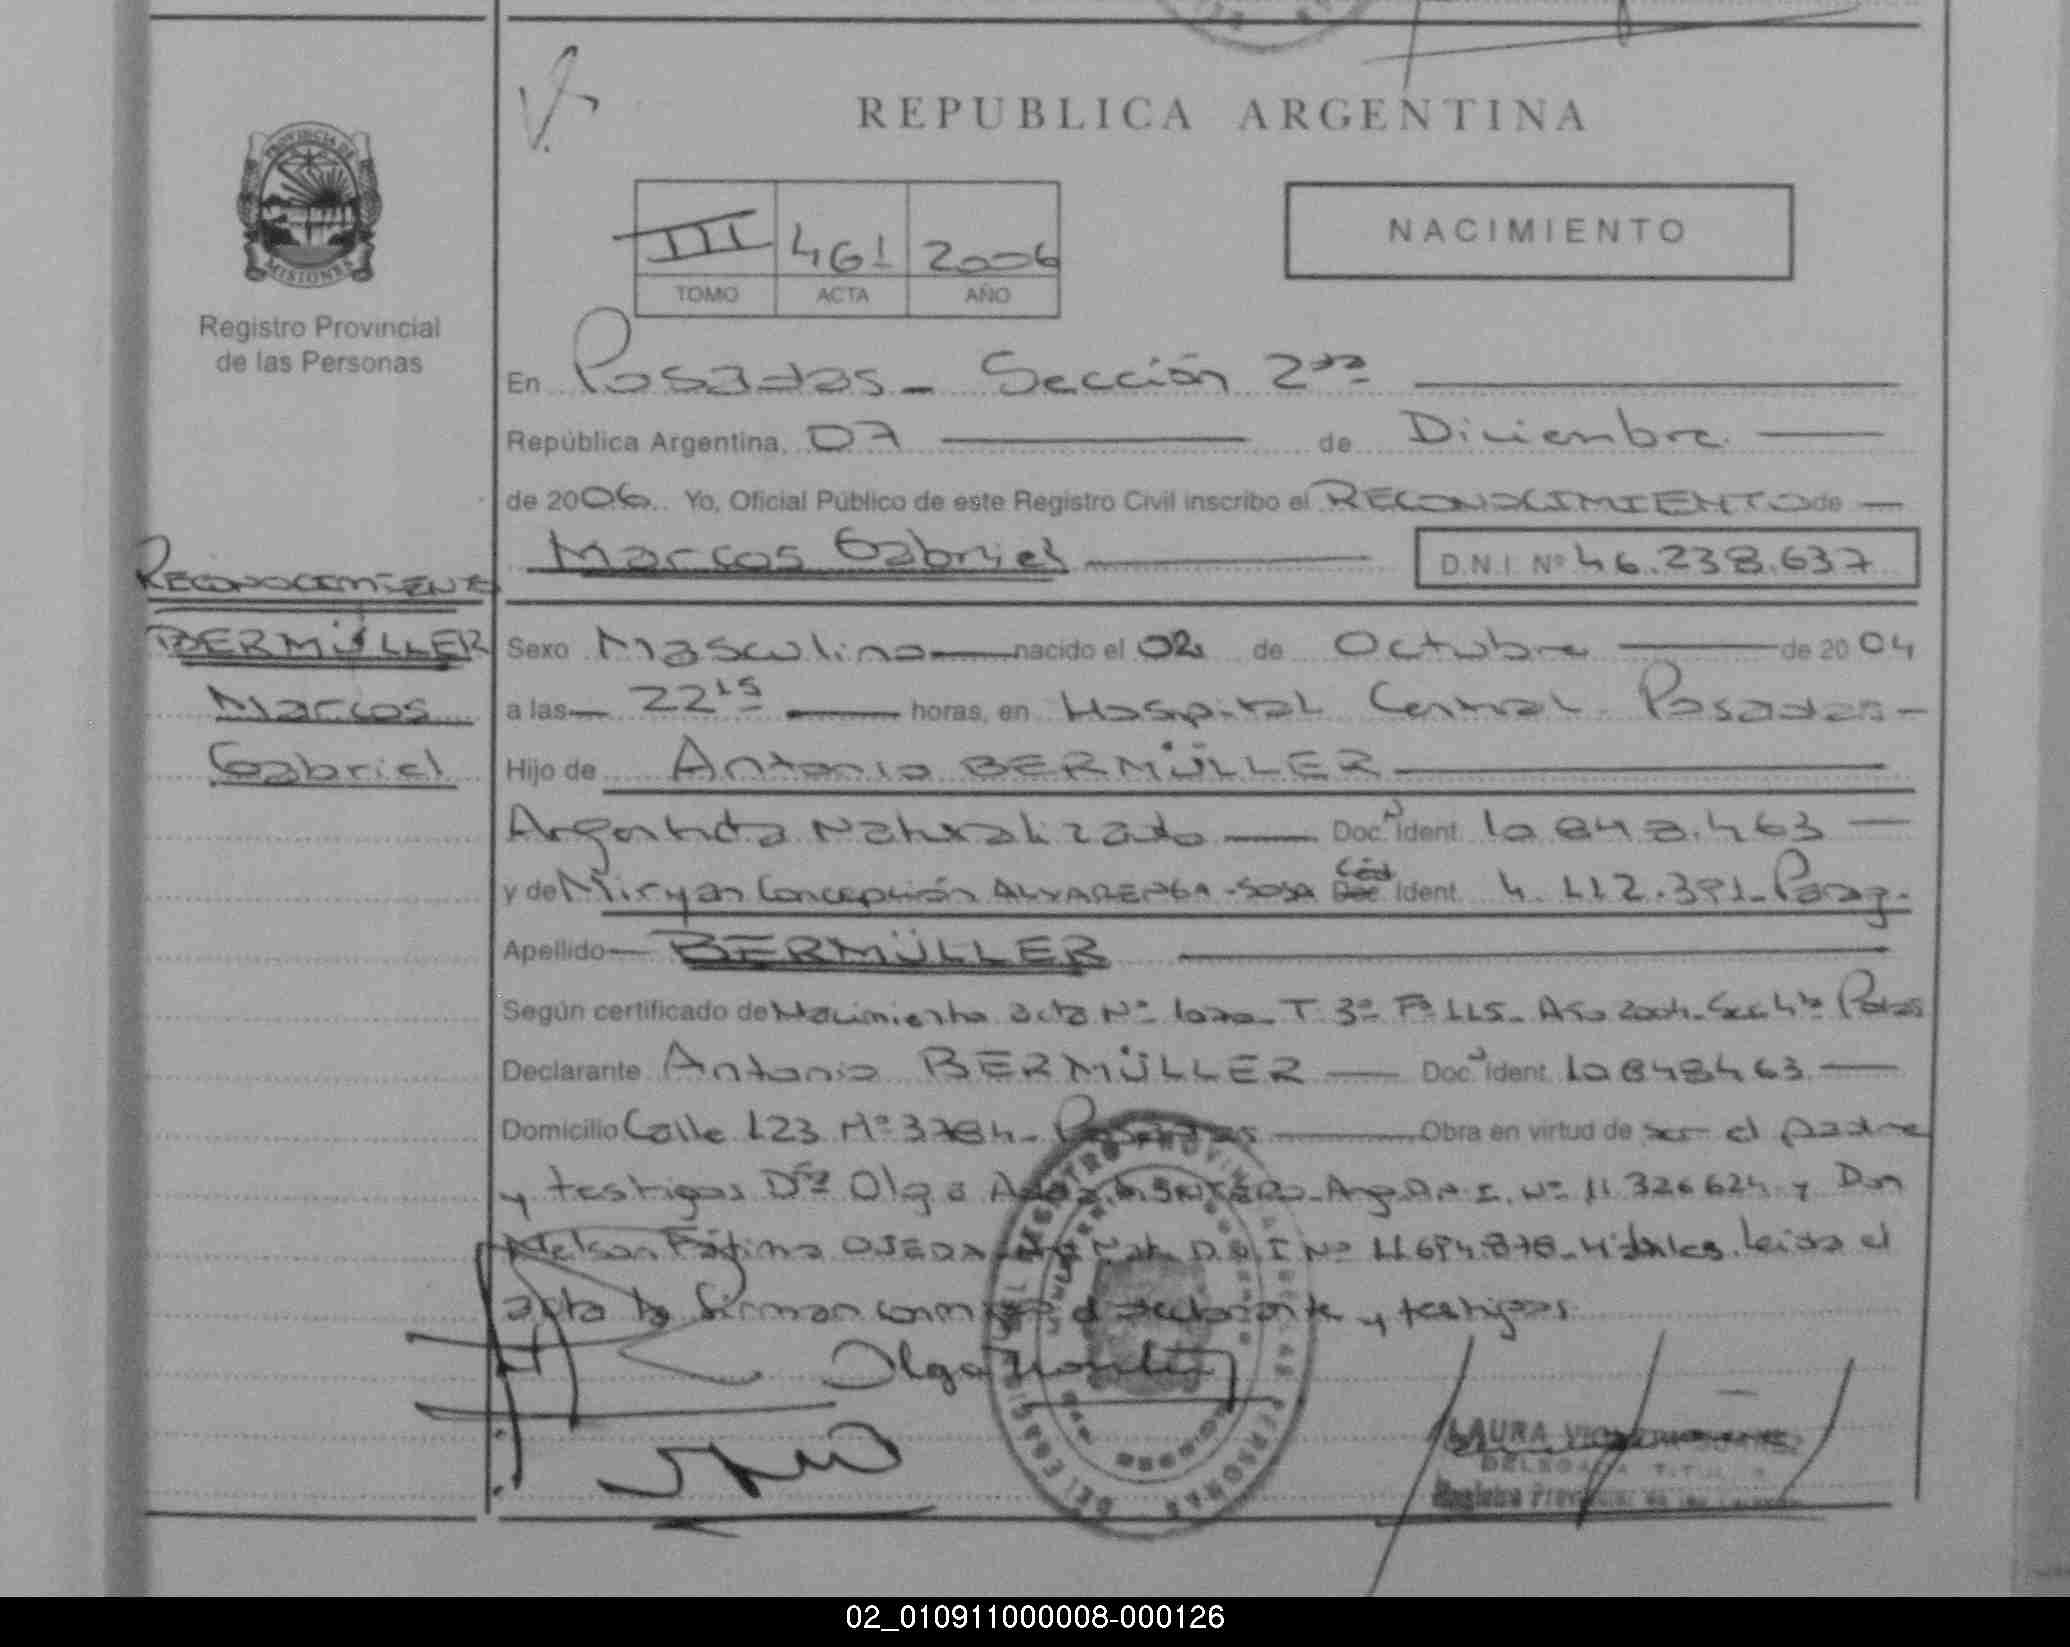 REPUBLICA ARGENTINA
PROVINCIA DE
MISIONES
Registro Provincial
de las Personas
III 461 2006
TOMO ACTA AÑO
NACIMIENTO
En Posadas - Sección 2da
República Argentina, 07 de Diciembre
de 2006. Yo, Oficial Público de este Registro Civil inscribo el RECONOCIMIENTO de
Marcos Gabriel D.N.I. Nº 46.238.637
RECONOCIMIENTO
BERMÜLLER
Marcos
Gabriel
Sexo Masculino nacido el 02 de Octubre de 2004
a las 22 15 horas, en Hospital Central Posadas-
Hijo de Antonio BERMÜLLER
Argentino Naturalizado Doc. Ident.
y de Miryan Concepción ALVARENGA - SOSA Céd Ident. 4.112.391- Parag.
Apellido BERMÜLLER
Según certificado de Nacimiento acta Nº T. 3º Fº 115- Año 2004- Sec 4ta Pdas
Declarante Antonio BERMÜLLER Doc. Ident.
Domicilio Calle 123 Nº 3784- Posadas Obra en virtud de ser el padre
y testigos Dña Olga Arg. D.N.I. Nº 11.326624 y Don
Nelson Fátima OJEDA Nat. D.N.I Nº Leida el
acta la firman conmigo el declarante y testigos.
Olga
LAURA
DELEGADA TITULAR
Registro Provincial de las
REGISTRO PROVINCIAL DE LAS PERSONAS
02_010911000008-000126